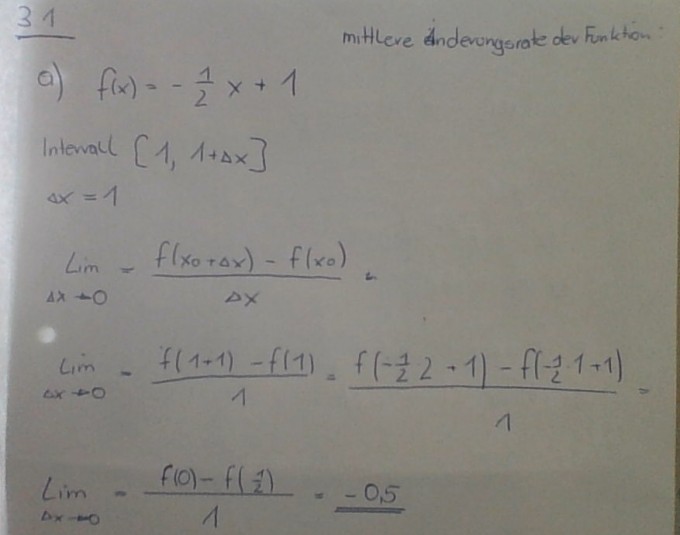 31
mittlere Änderungsrate der Funktion:
a) f(x) = - 1/2 x + 1
Intervall [1, 1+Δx]
Δx = 1
Lim Δx→0 = (f(x0+Δx) - f(x0)) / Δx =
Lim Δx→0 = (f(1+1) - f(1)) / 1 = (f(-1/2 · 2 + 1) - f(-1/2 · 1+1)) / 1 =
Lim Δx→0 = (f(0) - f(1/2)) / 1 = -0,5